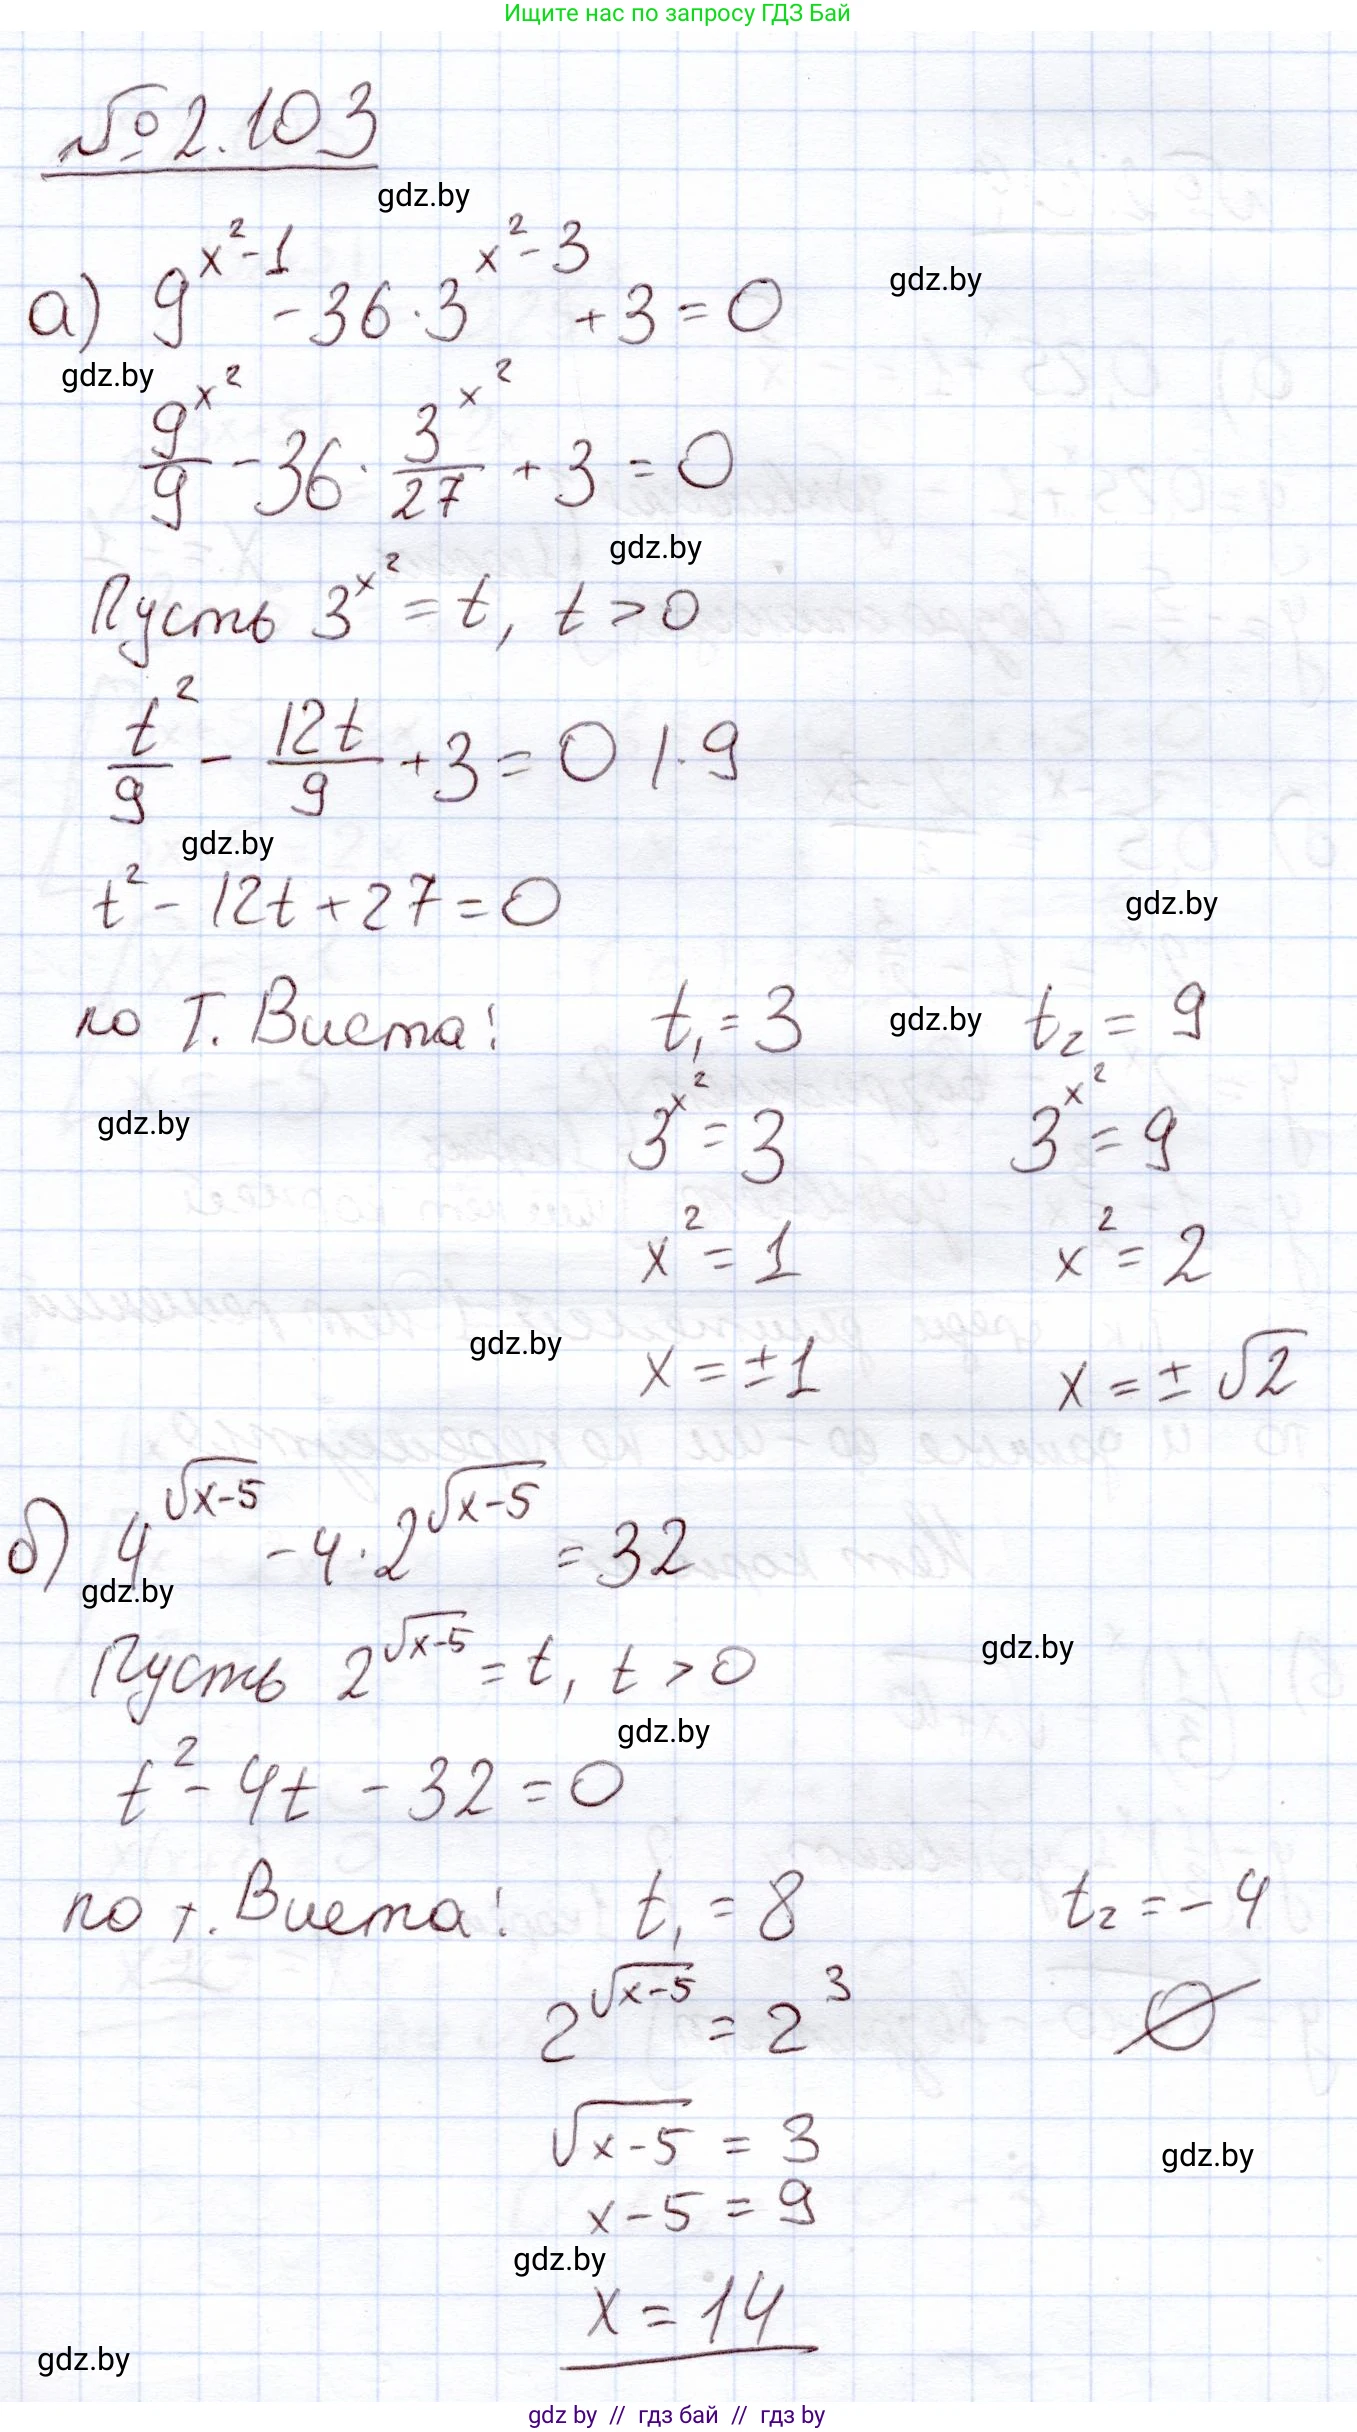 Ищите нас по запросу ГДЗ Бай
№2.103
gdz.by
а) 9^(x²-1) - 36·3^(x²-3) + 3 = 0
gdz.by
gdz.by
9^(x²)/9 - 36·3^(x²)/27 + 3 = 0
gdz.by
Пусть 3^(x²) = t, t > 0
t²/9 - 12t/9 + 3 = 0 |·9
gdz.by
t² - 12t + 27 = 0
gdz.by
по Т. Виета: t₁ = 3 gdz.by t₂ = 9
gdz.by
3^(x²) = 3 3^(x²) = 9
x² = 1 x² = 2
gdz.by
x = ±1 x = ±√2
б) 4^√(x-5) - 4·2^√(x-5) = 32
gdz.by
Пусть 2^√(x-5) = t, t > 0
gdz.by
gdz.by
t² - 4t - 32 = 0
по т. Виета: t₁ = 8 t₂ = -4
2^√(x-5) = 2³ ∅
√(x-5) = 3
gdz.by
x - 5 = 9
gdz.by
x = 14
gdz.by
gdz by // гдз бай // гдз by